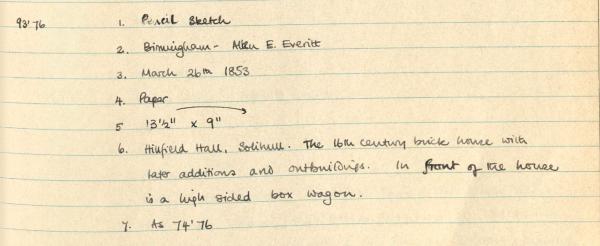 93'76 1. Pencil Sketch
2. Birmingham - Allen E. Everitt
3. March 26th 1853
4. Paper
5 13½" x 9"
6. Hillfield Hall, Solihull. The 16th century brick house with
later additions and outbuildings. In front of the house
is a high sided box wagon.
7. As 74'76